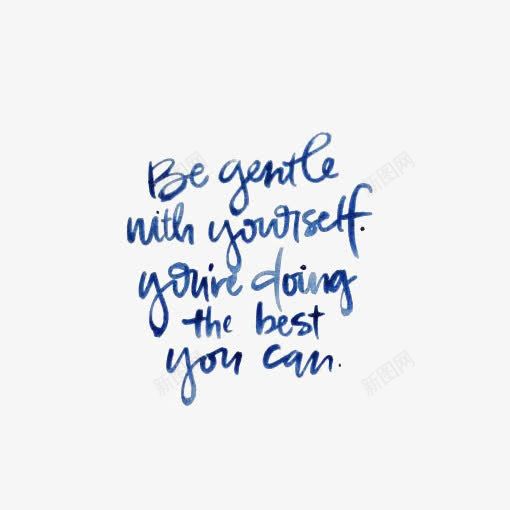 Be gentle
with yourself.
you're doing
the best
you can.
新图网
新图网
新图网
新图网